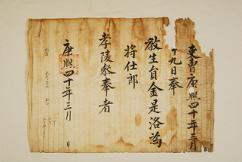 吏曹康熙四十年三月
十九日奉
教生貟金是洛爲
將仕郎
孝陵參奉者
康熙四十年三月 日